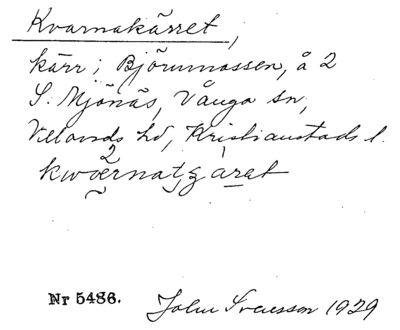 Kvarnakärret,
kärr i Björnmossen, å 2
S. Mjönäs, Vånga sn,
Villands hd, Kristianstads l.
Nr 5486. John Svensson 1929